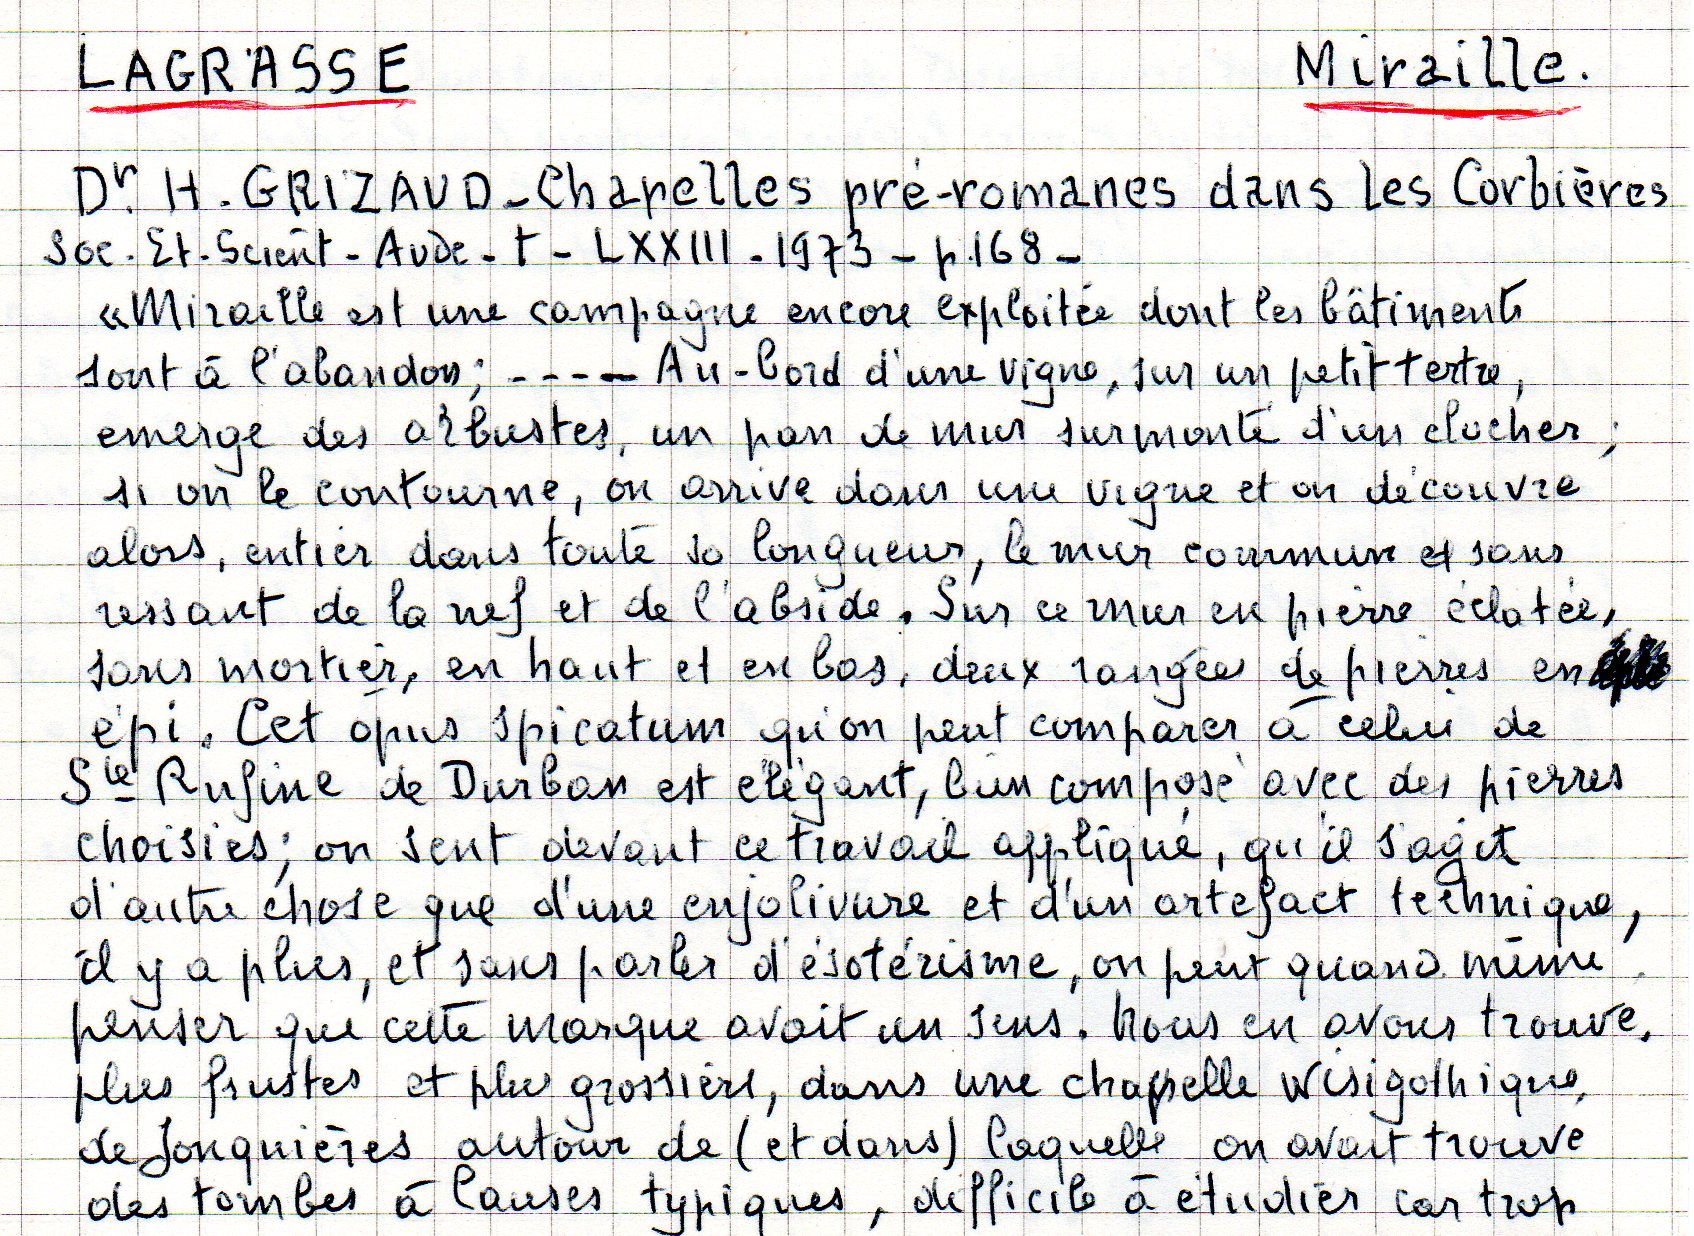 LAGRASSE
Miraille.
Dr. H. GRIZAUD - Chapelles pré-romanes dans les Corbières
Soc. Et. Scient - Aude - t - LXXIII - 1973 - p.168 -
« Miraille est une campagne encore exploitée dont les bâtiments
sont à l'abandon; ---- Au-bord d'une vigne, sur un petit tertre,
emerge des arbustes, un pan de mur surmonté d'un clocher ;
si on le contourne, on arrive dans une vigne et on découvre
alors, entier dans toute sa longueur, le mur commun et sans
ressaut de la nef et de l'abside. Sur ce mur en pierre éclatée,
sans mortier, en haut et en bas, deux rangées de pierres en
épi. Cet opus spicatum qu'on peut comparer à celui de
Ste Rufine de Durban est élégant, bien composé avec des pierres
choisies; on sent devant ce travail appliqué, qu'il s'agit
d'autre chose que d'une enjolivure et d'un artefact technique,
il y a plus, et sans parler d'ésotérisme, on peut quand même
penser que cette marque avait un sens. Nous en avons trouvé,
plus frustes et plus grossière, dans une chapelle wisigothique,
de Jonquières autour de (et dans) laquelle on avait trouvé
des tombes à lauses typiques, difficile à étudier car trop